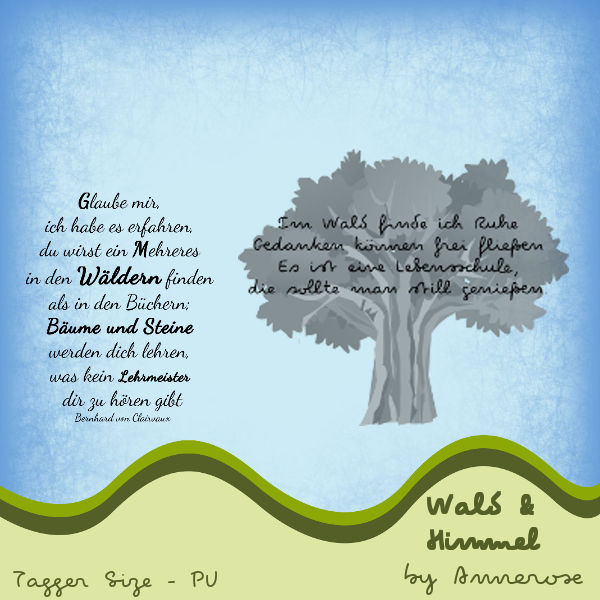 Glaube mir,
ich habe es erfahren,
du wirst ein Mehreres
in den Wäldern finden
als in den Büchern;
Bäume und Steine
werden dich lehren,
was kein Lehrmeister
dir zu hören gibt
Bernhard von Clairvaux
Im Wald finde ich Ruhe
Gedanken können frei fließen
Es ist eine Lebensschule,
die sollte man still genießen
Wald &
Himmel
by Annerose
Tagger Size - PU